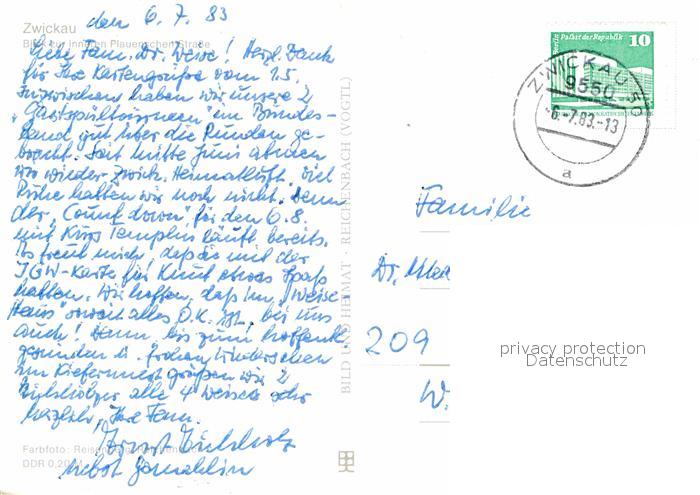 Zwickau
Blick zur inneren Plauenschen Straße
den 6.7.83
Liebe Fam. Dr. Weise! Herzl. Dank
für Ihre Kartengrüße vom 1.5.
Inzwischen haben wir unsere 2
im Bundes-
land gut über die Runden ge-
bracht. Seit Mitte Juni atmen
wir wieder Zwick. "Heimatluft". Viel
Ruhe hatten wir noch nicht. Denn
der "Count down" für den 6.8.
mit Kurs Templin läuft bereits.
Es freut mich, daß sie mit der
IGW-Karte für Knut etwas Spaß
hatten. Wir hoffen, daß im "Weise
Haus" soweit alles O.K. ist, bei uns
auch! Dann, bis zum hoffentl.
gesunden u. frohen Wiedersehen
im Kiefernnest grüßen wir 2
alle 4 Weises sehr
herzlich, Ihre Fam.
Ernst
nebst Gemahlin
Farbfoto: Reisen
DDR 0,20 M
BILD UND HEIMAT · REICHENBACH (VOGTL)
Berlin Palast der Republik 10
ZWICKAU 50
9550
-6.-7.83.-13
a
Familie
Dr.
209
W.
privacy protection
Datenschutz